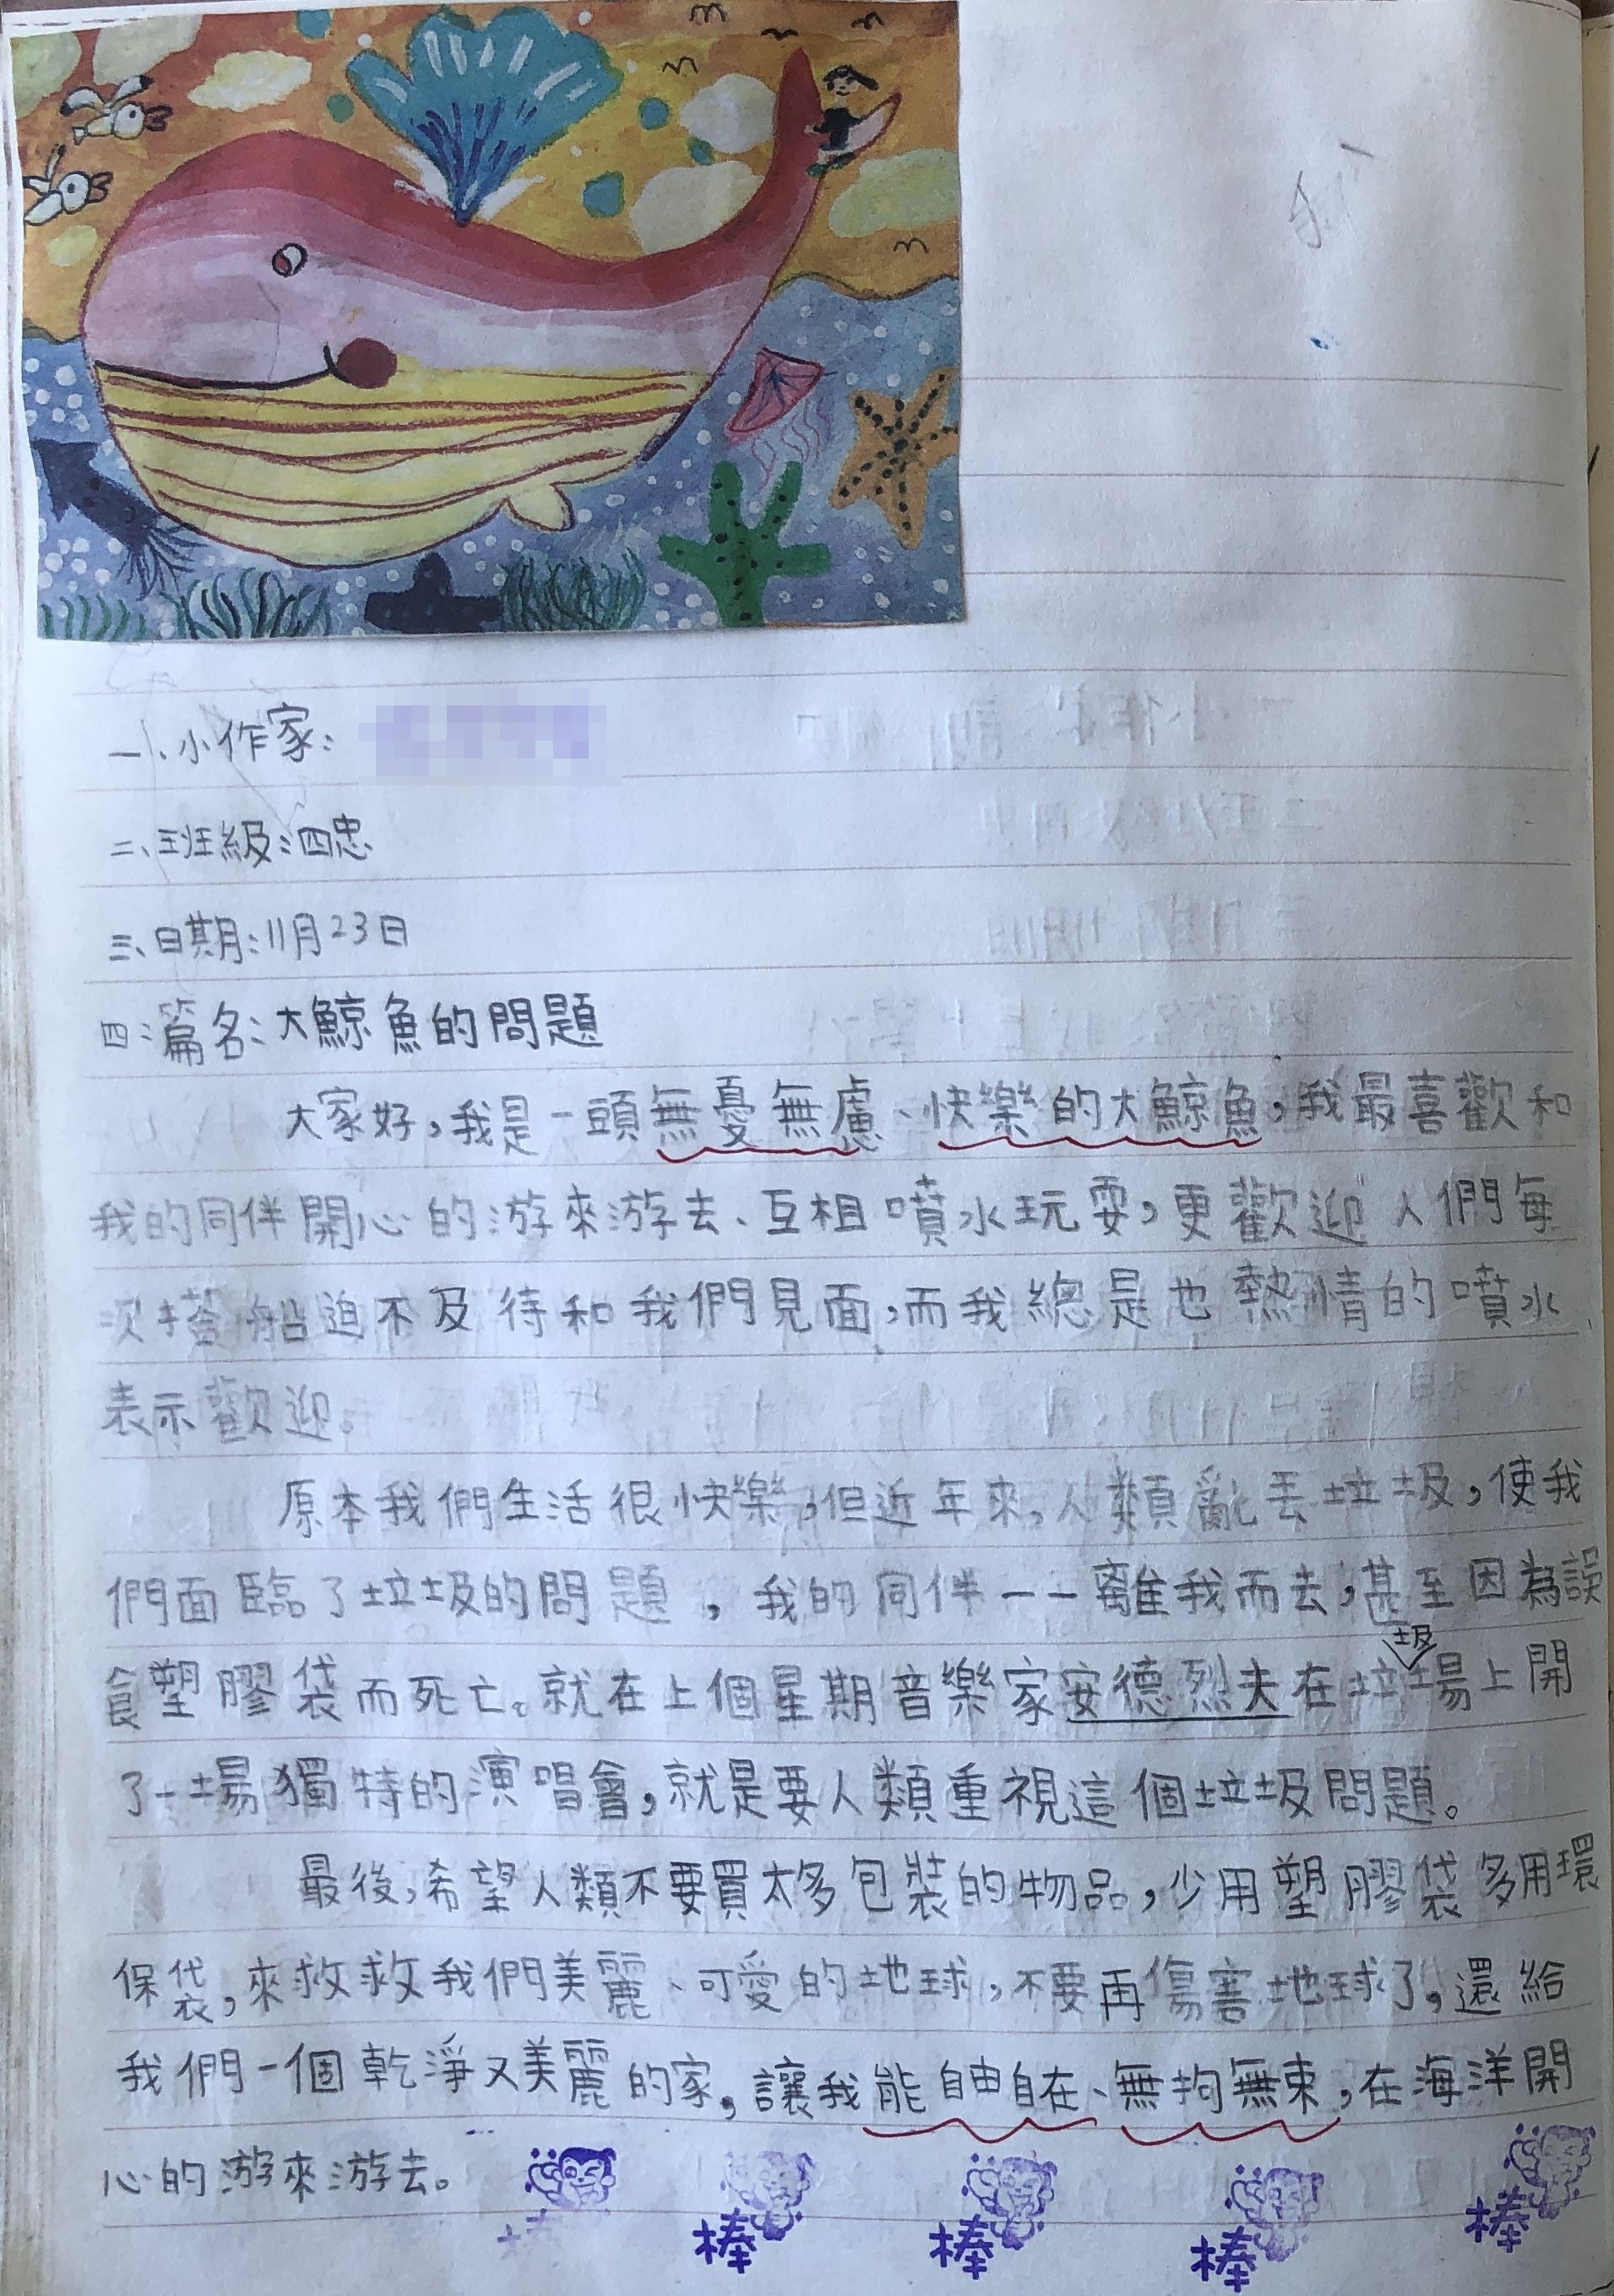 一、小作家:
二、班級:四忠
三、日期:11月23日
四:篇名:大鯨魚的問題
大家好,我是一頭無憂無慮、快樂的大鯨魚,我最喜歡和
我的同伴開心的游來游去、互相噴水玩耍,更歡迎人們每
次搭船迫不及待和我們見面,而我總是也熱情的噴水
表示歡迎。
原本我們生活很快樂,但近年來,人類亂丟垃圾,使我
們面臨了垃圾的問題,我的同伴一一離我而去,甚至因為誤
食塑膠袋而死亡。就在上個星期音樂家安德烈夫在垃圾場上開
了一場獨特的演唱會,就是要人類重視這個垃圾問題。
最後,希望人類不要買太多包裝的物品,少用塑膠袋多用環
保袋,來救救我們美麗、可愛的地球,不要再傷害地球了,還給
我們一個乾淨又美麗的家,讓我能自由自在、無拘無束,在海洋開
心的游來游去。
棒 棒 棒 棒 棒